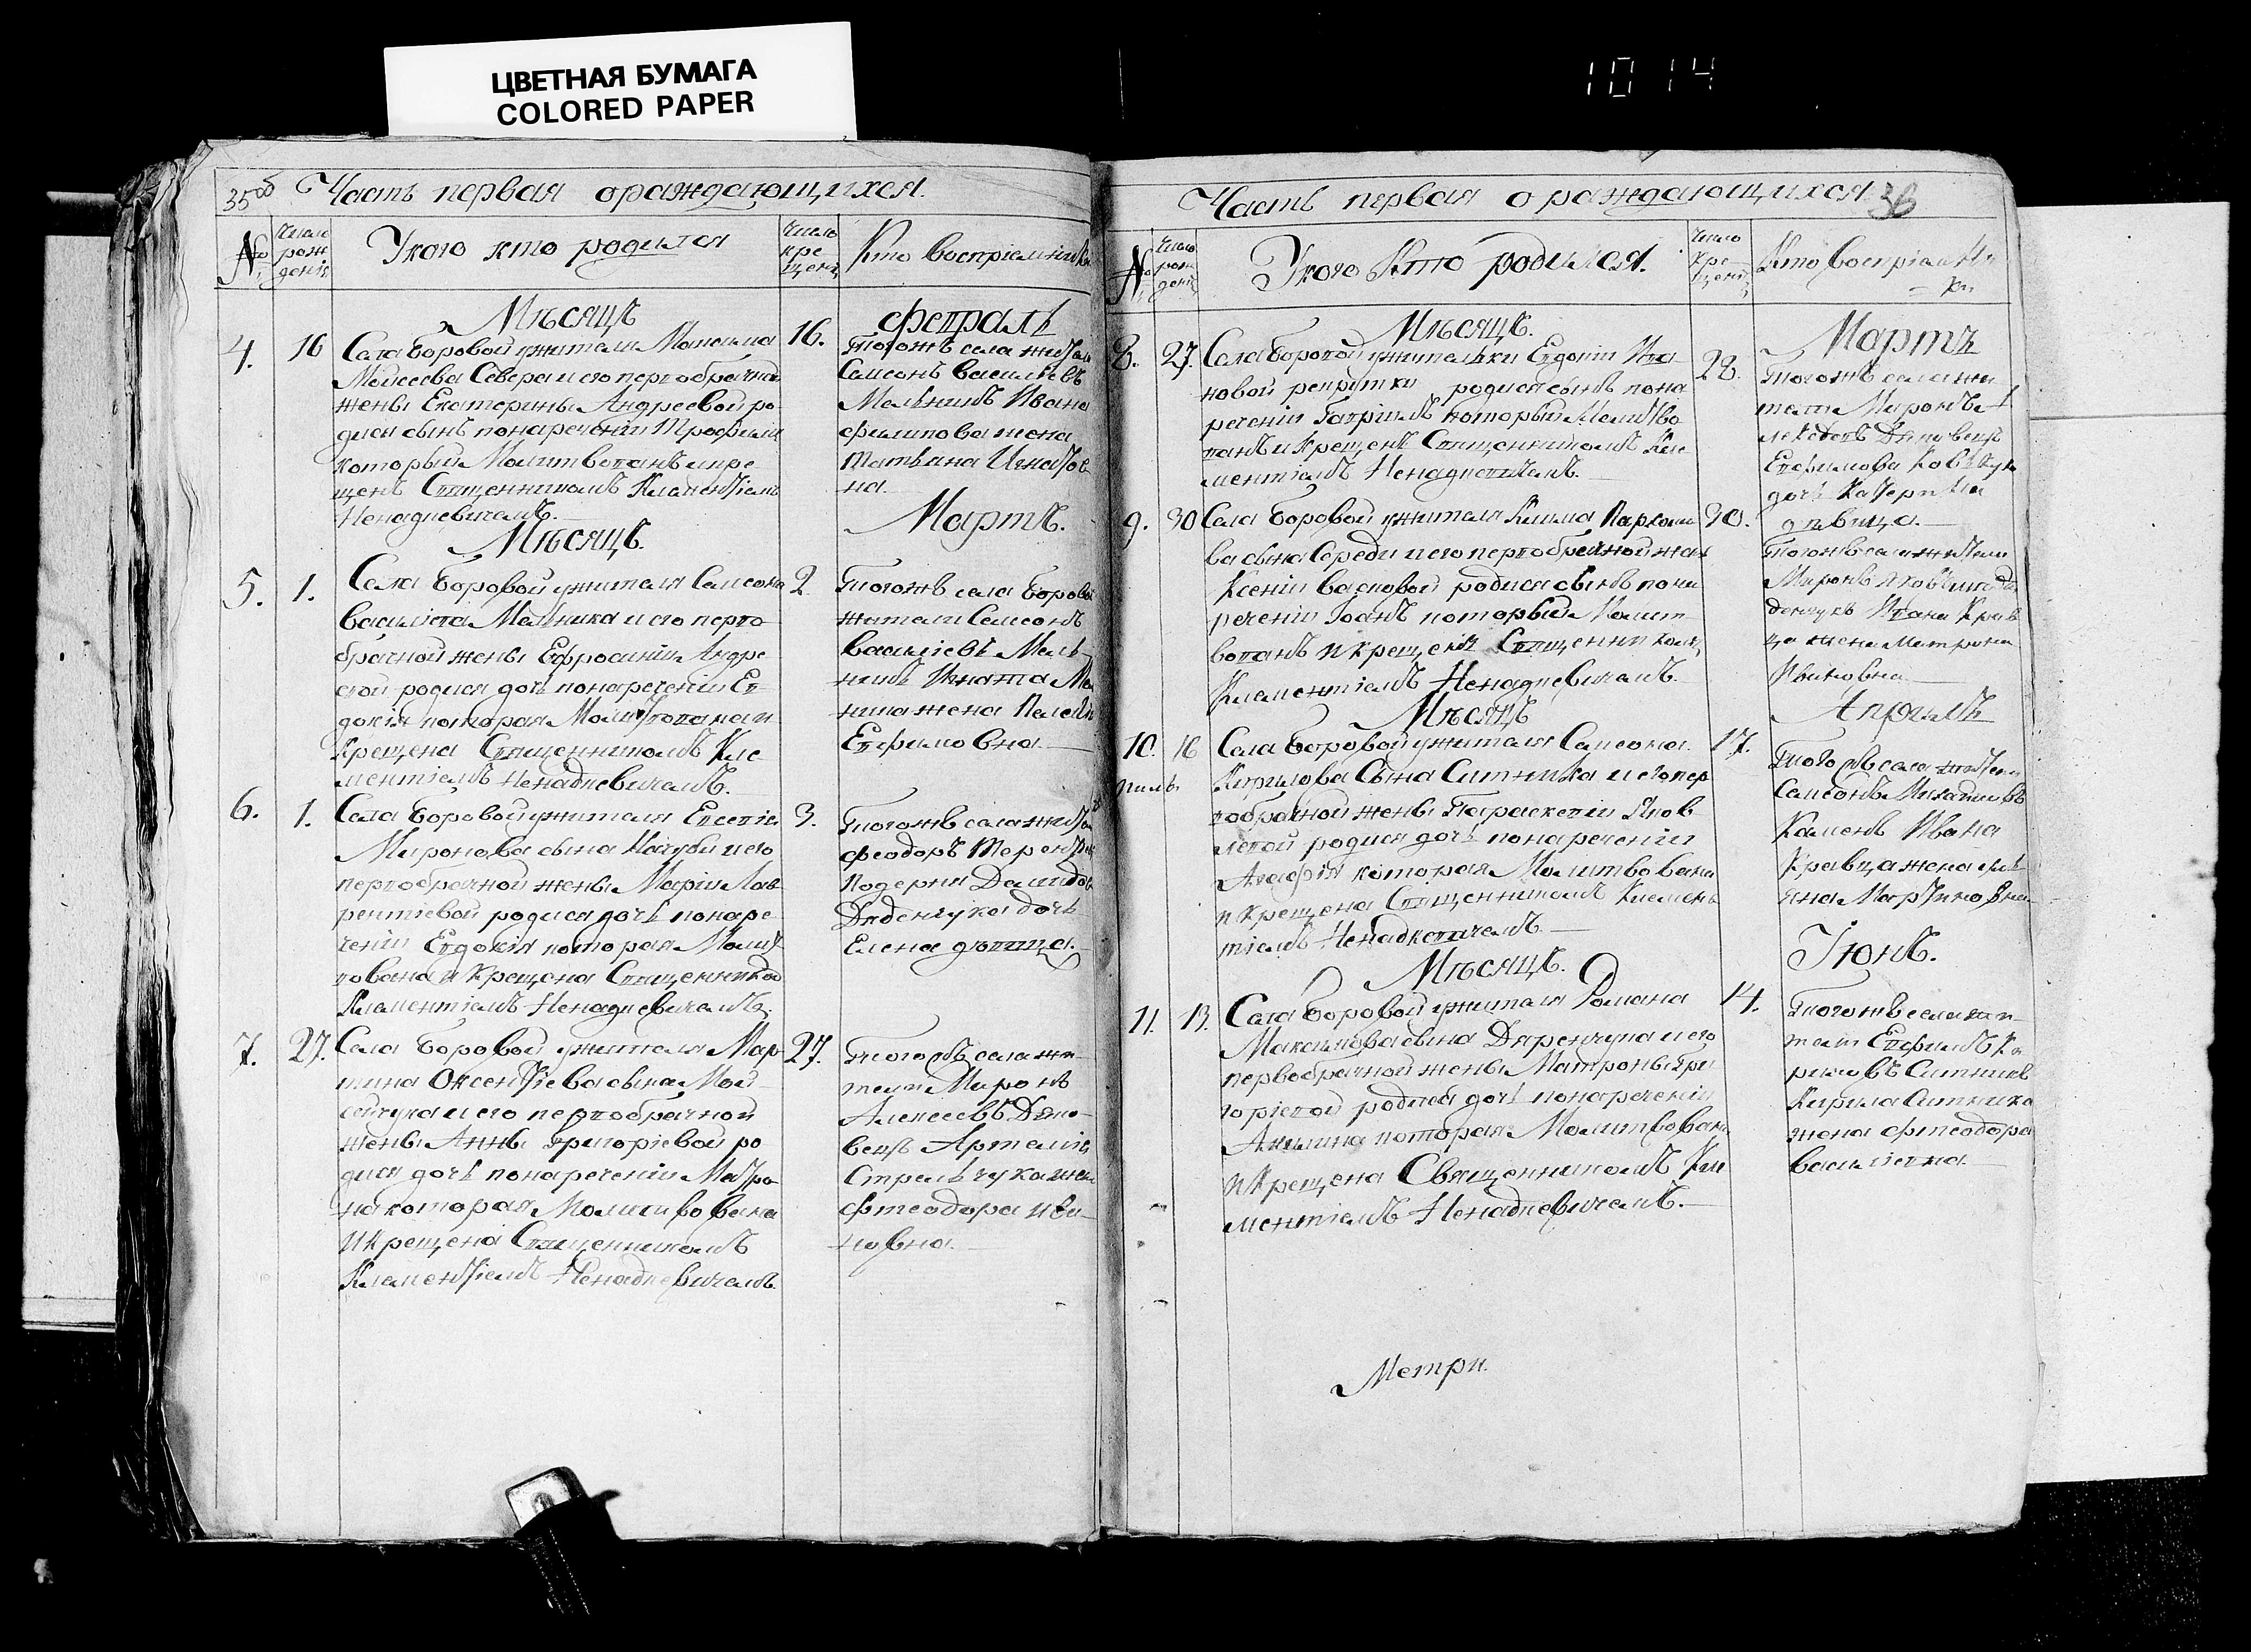 ЦВЕТНАЯ БУМАГА
COLORED PAPER
1014
35об
Часть первая о раждающихся.
№
Число рождения
У кого кто родился
Число крещения
Кто восприемники
Мѣсяцъ
февраль
4.
16
Села Боровой жителя Максима
Моисеева Севера и его первобрачной
жены Екатерины Андреевой ро
дися сынъ по наречении Трофимъ
который Молитвованъ и кре
щенъ Священникомъ Климентіемъ
Ненадкевичемъ.
16.
тогожъ села житель
Самсонъ Василіевъ
Мельникъ Ивана
филипова жена
Татьяна Игнатов
на.
Мѣсяцъ.
Мартъ.
5.
1.
Села Боровой жителя Самсона
Василіева Мельника и его перво
брачной жены Ефросиніи Андре
евой родися дочь по наречении Ев
докія которая Молитвована и
крещена Священникомъ Кле
ментіемъ Ненадкевичемъ.
2.
тогожъ села Боровой
житель Самсонъ
Василіевъ Мель
никъ Игната
жена
Евфимовна
6.
1.
Села Боровой жителя Евсевія
Миронова сына и его
первобрачной жены Маріи Лав
рентіевой родися дочь по наре
ченіи Евдокія которая Молит
вована и крещена Священникомъ
Климентіемъ Ненадкевичемъ.
3.
тогожъ села житель
феодоръ
дочь
Елена дѣвица.
7.
27.
Села Боровой жителя Мар
тина сына Мой
сейчука и его первобрачной
жены Анны Григоріевой ро
дися дочь по наречении Матро
на которая Молитвована
и крещена Священникомъ
Климентіемъ Ненадкевичемъ.
27.
тогожъ села жи
тель Миронъ
Алексеевъ Дяко
вецъ Артемія
Стрельчука жена
феодора Ива
новна.
Часть первая о раждающихся.
36
№
Число рождения
У кого Кто родился.
Число Крещения
Кто восприемники
Мѣсяцъ.
Мартъ
8.
27.
Села Боровой жительки Евдокіи Ива
новой рекрутки родися сынъ по на
речении Гавріилъ который Молитво
ванъ и крещенъ Священникомъ Кли
ментіемъ Ненадкевичемъ.
28.
тогожъ села жи
тель Миронъ
Евфимова
дочь Катерина
дѣвица.
9.
30
Села Боровой жителя Клима Пархомо
ва сына Середи и его первобрачной жены
Ксеніи родися сынъ по на
речении Іоанъ который Молит
вованъ и крещенъ Священникомъ
Климентіемъ Ненадкевичемъ.
30.
тогожъ села житель
Миронъ
Ивана Крав
ца жена Матрона
Мѣсяцъ
Апрель
10.
16
Села Боровой жителя Самсона
Кирилова Сына Ситника и его пер
вобрачной жены Параскевіи Яков
левой родися дочь по наречении
Агафія которая Молитвована
и крещена Священникомъ Климен
тіемъ Ненадкевичемъ.
17.
тогожъ села житель
Самсонъ
Ивана
Кравца жена Уль
яна Мартиновна
Мѣсяцъ.
Іюнь.
11.
13.
Села Боровой жителя Романа
Максимова сына и его
первобрачной жены Матроны Гри
горіевой родися дочь по наречении
Акилина которая Молитвована
и крещена Священникомъ Кли
ментіемъ Ненадкевичемъ.
14.
тогожъ села жи
тель Евфимъ Ки
риловъ Ситникъ
Кирила Ситника
жена феодора
Василіевна.
Метри.